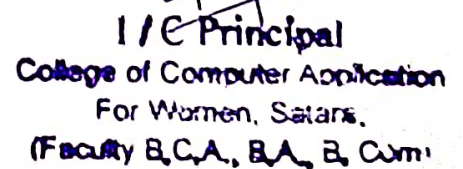 I/C Principal
College of Computer Application
For Women, Satara.
(Faculty B.C.A., B.A., B. Com